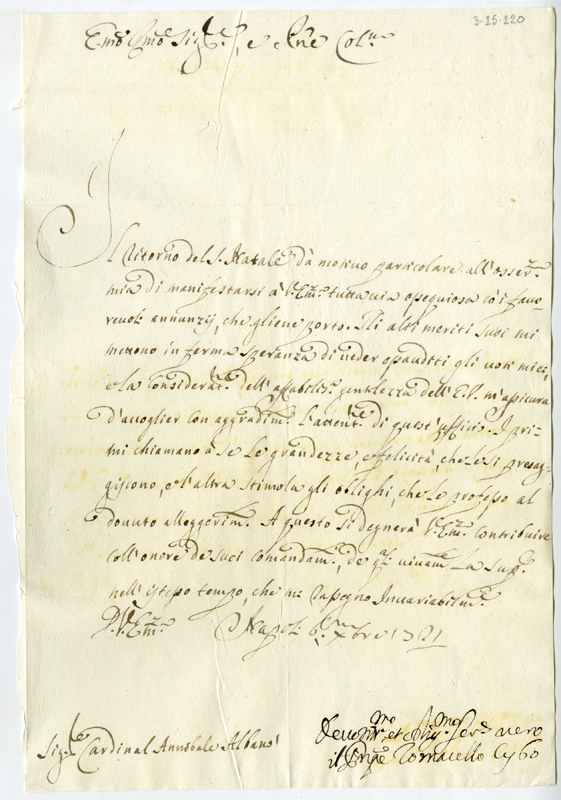 3-25-220
Em̃o Rm̃o Sig.re, e Pñe Col.mo
Il ritorno del S. Natale dà motivo particolare all'osser.za
mia di manifestarsi à V. Em.za tuttavia ossequiosa cõ i favo-
revoli annunzij, che gliene porto. Gli alti meriti suoi mi
mettono in ferma speranza di veder esauditi gli voti miei,
e la considerat.ne dell'affabiliss.a gentilezza dell'E.V. m'assicura
d'accoglier con aggradim.to l'attent.ne di quest'ufficio. I pri-
mi chiamano à se le grandezze, e felicità, che le si presag-
giscono, e l'altra stimola gli oblighi, che le professo al
dovuto allegerim.to A questo si degnerà V. Em.za contribuire
coll'onore de suoi comandam.ti, de q.li vivam.te La sup.co
nell'istesso tempo, che mi rassegno Invariabilm.te
D. V. Em.za Napoli 6. Xbre 1721
Sig.r Cardinal Annibale Albani
Devotis.mo et Oblig.mo Ser.re vero
il Prñpe Tomacello Cybo